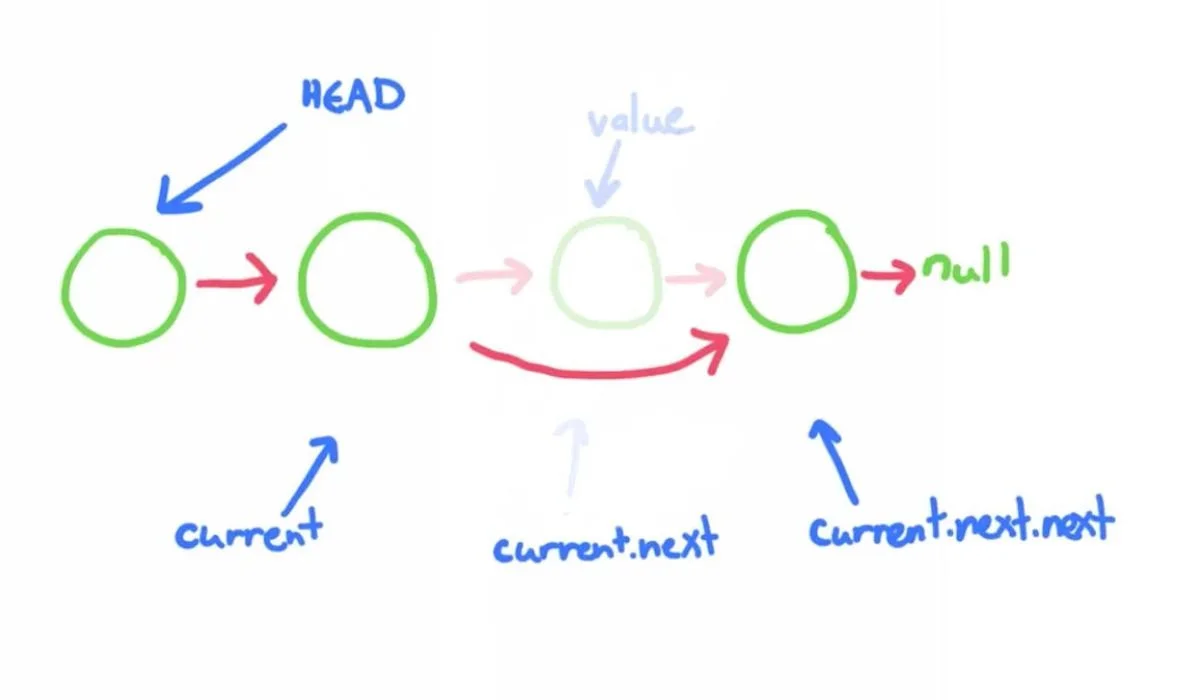 HEAD
value
null
current
current.next
current.next.next